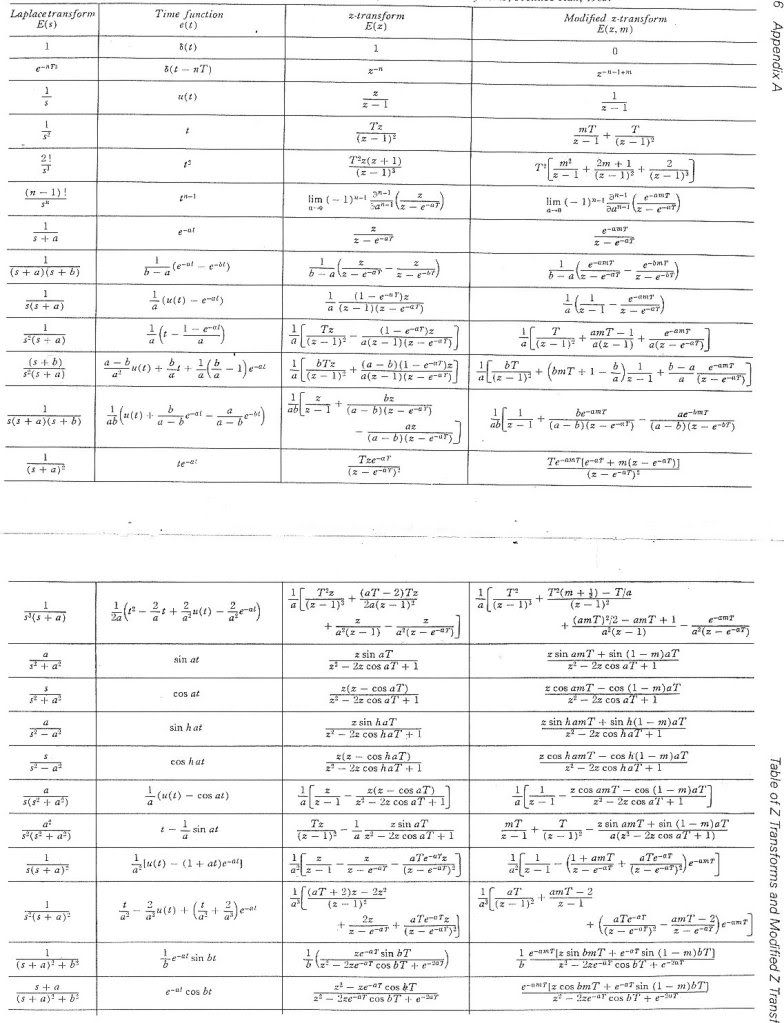 6 Appendix A
Laplace transform E(s) | Time function e(t) | z-transform E(z) | Modified z-transform E(z, m)
1 | δ(t) | 1 | 0
e^{-nTs} | δ(t − nT) | z^{-n} | z^{-n-1+m}
1/s | u(t) | z/(z − 1) | 1/(z − 1)
1/s² | t | Tz/(z − 1)² | mT/(z − 1) + T/(z − 1)²
2!/s³ | t² | T²z(z + 1)/(z − 1)³ | T²[m²/(z − 1) + (2m + 1)/(z − 1)² + 2/(z − 1)³]
(n − 1)!/sⁿ | t^{n-1} | lim_{a→0} (−1)^{n-1} ∂^{n-1}/∂a^{n-1} (z/(z − e^{-aT})) | lim_{a→0} (−1)^{n-1} ∂^{n-1}/∂a^{n-1} (e^{-amT}/(z − e^{-aT}))
1/(s + a) | e^{-at} | z/(z − e^{-aT}) | e^{-amT}/(z − e^{-aT})
1/((s + a)(s + b)) | 1/(b − a) (e^{-at} − e^{-bt}) | 1/(b − a) (z/(z − e^{-aT}) − z/(z − e^{-bT})) | 1/(b − a) (e^{-amT}/(z − e^{-aT}) − e^{-bmT}/(z − e^{-bT}))
1/(s(s + a)) | 1/a (u(t) − e^{-at}) | 1/a (1 − e^{-aT})z/((z − 1)(z − e^{-aT})) | 1/a (1/(z − 1) − e^{-amT}/(z − e^{-aT}))
1/(s²(s + a)) | 1/a (t − (1 − e^{-at})/a) | 1/a [Tz/(z − 1)² − (1 − e^{-aT})z/(a(z − 1)(z − e^{-aT}))] | 1/a [T/(z − 1)² + (amT − 1)/(a(z − 1)) + e^{-amT}/(a(z − e^{-aT}))]
(s + b)/(s²(s + a)) | (a − b)/a² u(t) + b/a t + 1/a (b/a − 1) e^{-at} | 1/a [bTz/(z − 1)² + (a − b)(1 − e^{-aT})z/(a(z − 1)(z − e^{-aT}))] | 1/a [bT/(z − 1)² + (bmT + 1 − b/a) 1/(z − 1) + (b − a)/a e^{-amT}/(z − e^{-aT})]
1/(s(s + a)(s + b)) | 1/ab (u(t) + b/(a − b) e^{-at} − a/(a − b) e^{-bt}) | 1/ab [z/(z − 1) + bz/((a − b)(z − e^{-aT})) − az/((a − b)(z − e^{-aT}))] | 1/ab [1/(z − 1) + be^{-amT}/((a − b)(z − e^{-aT})) − ae^{-bmT}/((a − b)(z − e^{-bT}))]
1/(s + a)² | te^{-at} | Tze^{-aT}/(z − e^{-aT})² | Te^{-amT}[e^{-aT} + m(z − e^{-aT})]/(z − e^{-aT})²
1/(s³(s + a)) | 1/2a (t² − 2/a t + 2/a² u(t) − 2/a² e^{-at}) | 1/a [T²z/(z − 1)³ + (aT − 2)Tz/(2a(z − 1)²) + z/(a²(z − 1)) − z/(a²(z − e^{-aT}))] | 1/a [T²/(z − 1)³ + (T²(m + ½) − T/a)/(z − 1)² + ((amT)²/2 − amT + 1)/(a²(z − 1)) − e^{-amT}/(a²(z − e^{-aT}))]
a/(s² + a²) | sin at | z sin aT/(z² − 2z cos aT + 1) | (z sin amT + sin (1 − m)aT)/(z² − 2z cos aT + 1)
s/(s² + a²) | cos at | z(z − cos aT)/(z² − 2z cos aT + 1) | (z cos amT − cos (1 − m)aT)/(z² − 2z cos aT + 1)
a/(s² − a²) | sin hat | z sin haT/(z² − 2z cos haT + 1) | (z sin hamT + sin h(1 − m)aT)/(z² − 2z cos haT + 1)
s/(s² − a²) | cos hat | z(z − cos haT)/(z² − 2z cos haT + 1) | (z cos hamT − cos h(1 − m)aT)/(z² − 2z cos haT + 1)
a/(s(s² + a²)) | 1/a (u(t) − cos at) | 1/a [z/(z − 1) − z(z − cos aT)/(z² − 2z cos aT + 1)] | 1/a [1/(z − 1) − (z cos amT − cos (1 − m)aT)/(z² − 2z cos aT + 1)]
a²/(s²(s² + a²)) | t − 1/a sin at | Tz/(z − 1)² − 1/a z sin aT/(z² − 2z cos aT + 1) | mT/(z − 1) + T/(z − 1)² − (z sin amT + sin (1 − m)aT)/(a(z² − 2z cos aT + 1))
1/(s(s + a)²) | 1/a² [u(t) − (1 + at)e^{-at}] | 1/a² [z/(z − 1) − z/(z − e^{-aT}) − aTe^{-aT}z/(z − e^{-aT})²] | 1/a² [1/(z − 1) − ((1 + amT)/(z − e^{-aT}) + aTe^{-aT}/(z − e^{-aT})²) e^{-amT}]
1/(s²(s + a)²) | t/a² − 2/a³ u(t) + (t/a² + 2/a³) e^{-at} | 1/a³ [((aT + 2)z − 2z²)/(z − 1)² + 2z/(z − e^{-aT}) + aTe^{-aT}z/(z − e^{-aT})²] | 1/a³ [aT/(z − 1)² + (amT − 2)/(z − 1) + (aTe^{-aT}/(z − e^{-aT})² − (amT − 2)/(z − e^{-aT})) e^{-amT}]
1/((s + a)² + b²) | 1/b e^{-at} sin bt | 1/b (ze^{-aT} sin bT/(z² − 2ze^{-aT} cos bT + e^{-2aT})) | 1/b e^{-amT}[z sin bmT + e^{-aT} sin (1 − m)bT]/(z² − 2ze^{-aT} cos bT + e^{-2aT})
(s + a)/((s + a)² + b²) | e^{-at} cos bt | (z² − ze^{-aT} cos bT)/(z² − 2ze^{-aT} cos bT + e^{-2aT}) | e^{-amT}[z cos bmT + e^{-aT} sin (1 − m)bT]/(z² − 2ze^{-aT} cos bT + e^{-2aT})
Table of Z Transforms and Modified Z Transf